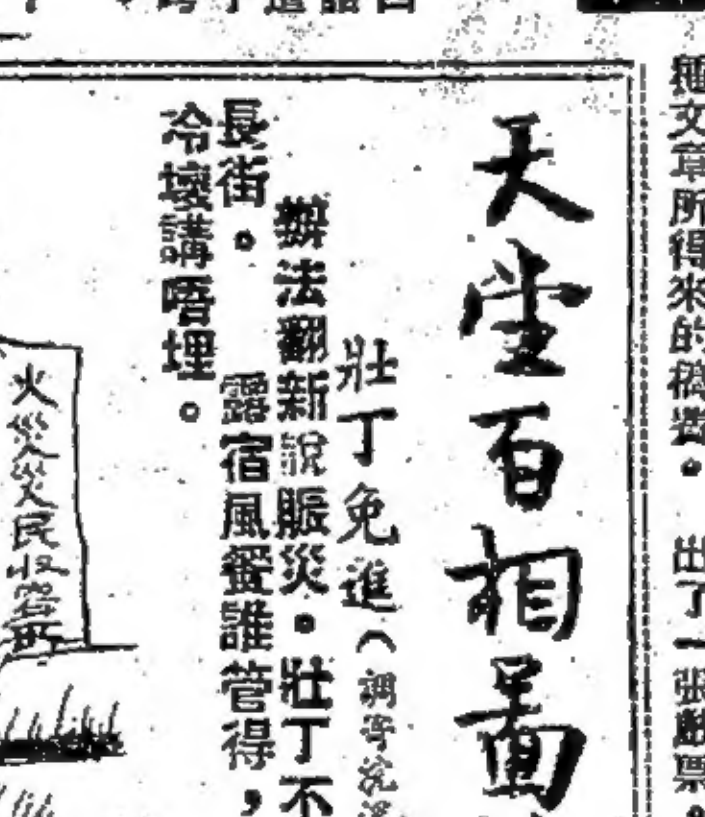 種文章所得來的稿費。 出了一張戲票。
天堂百相圖
壯丁免進(調寄浣溪
辦法翻新說賑災。壯丁不
長街。 露宿風餐誰管得,
冷壞講唔埋。
火災災民收容所